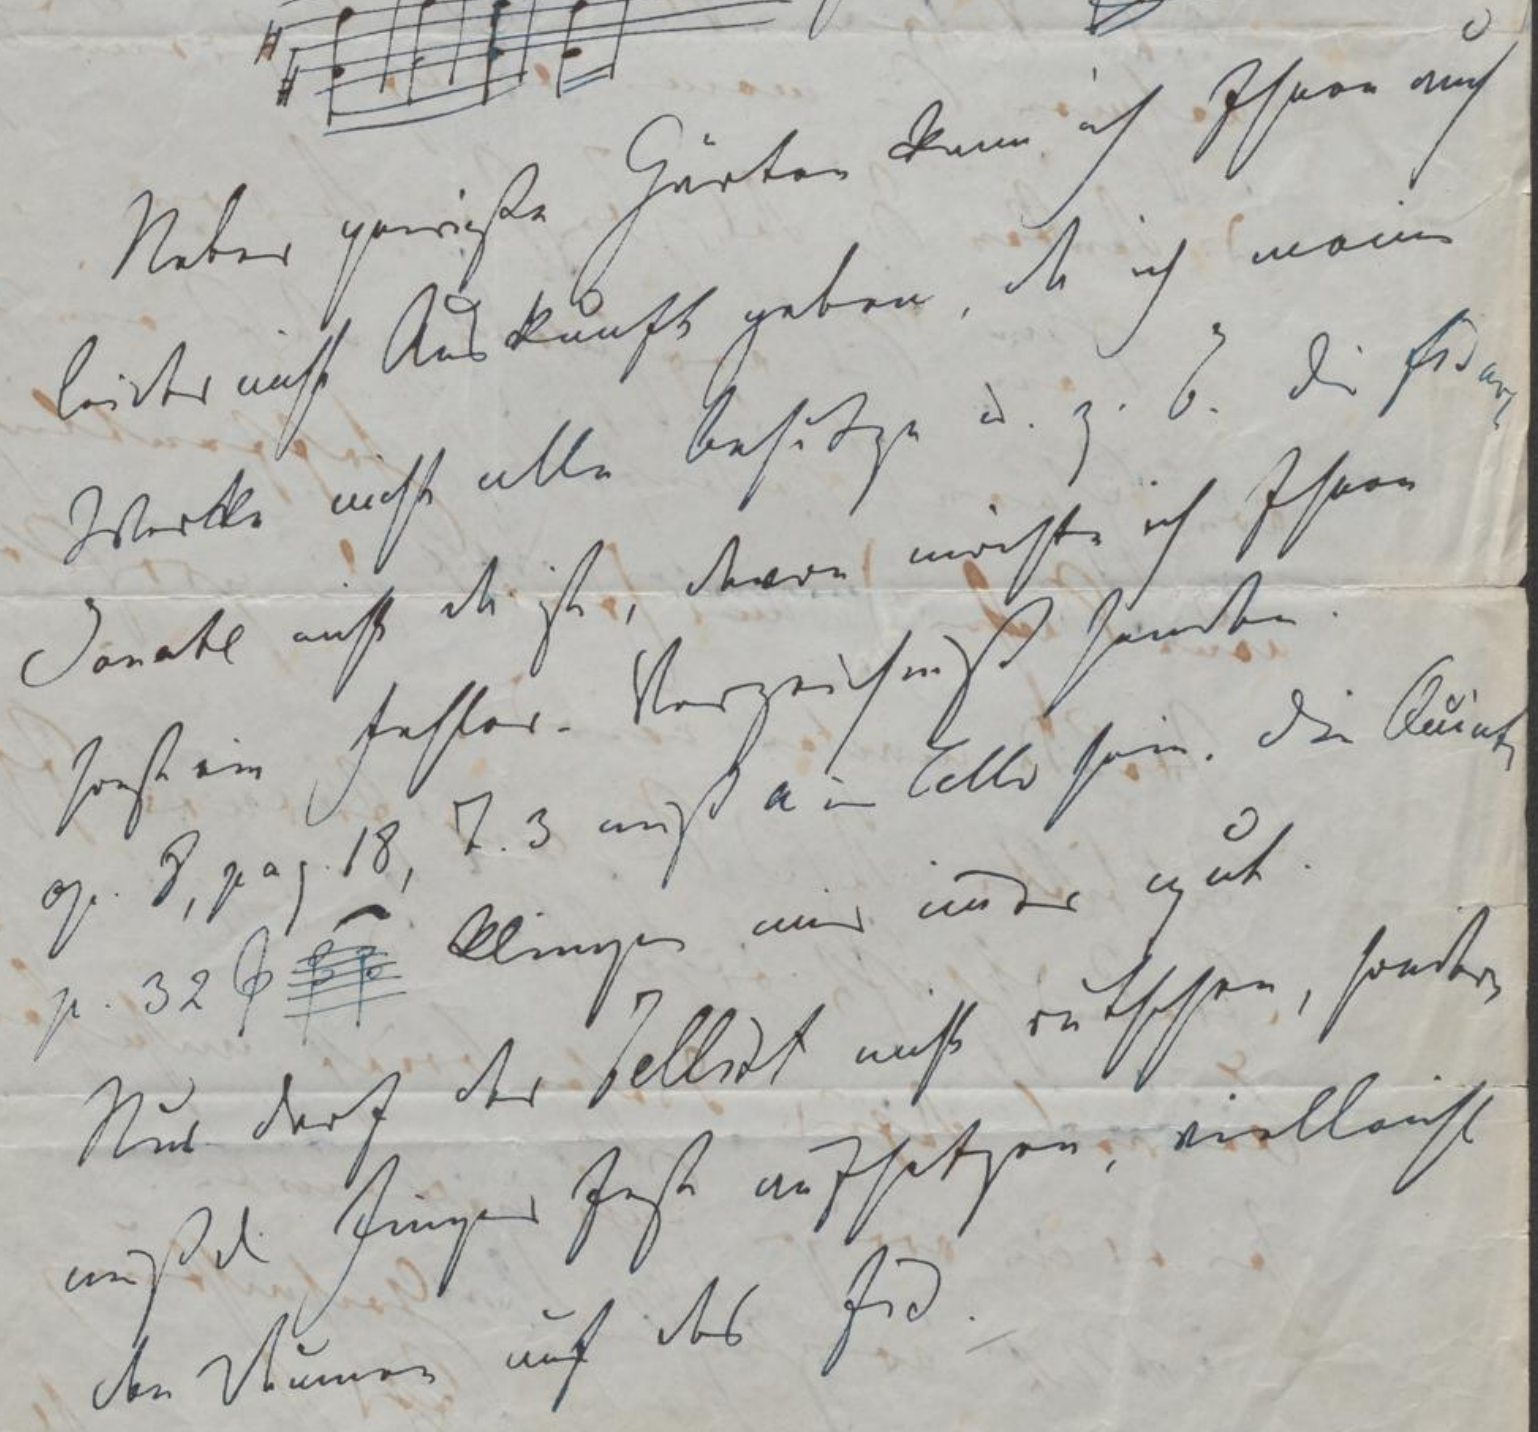 Ueber gewisse Härten kann ich Ihnen auch
leider nicht Auskunft geben, da ich meine
Werke nicht alle besitze u. z. B. die fis
Sonate nicht da ist, davon möchte ich Ihnen
sonst ein Fehler-Verzeichniß senden.
op. 8, pag. 18, Z. 3 muß a im Cello sein. Die Quinten
p. 32 klingen mir immer gut.
Nur darf der Cellist nicht rutschen, sondern
muß d. Finger fest aufsetzen, vielleicht
den Daumen auf das fis.